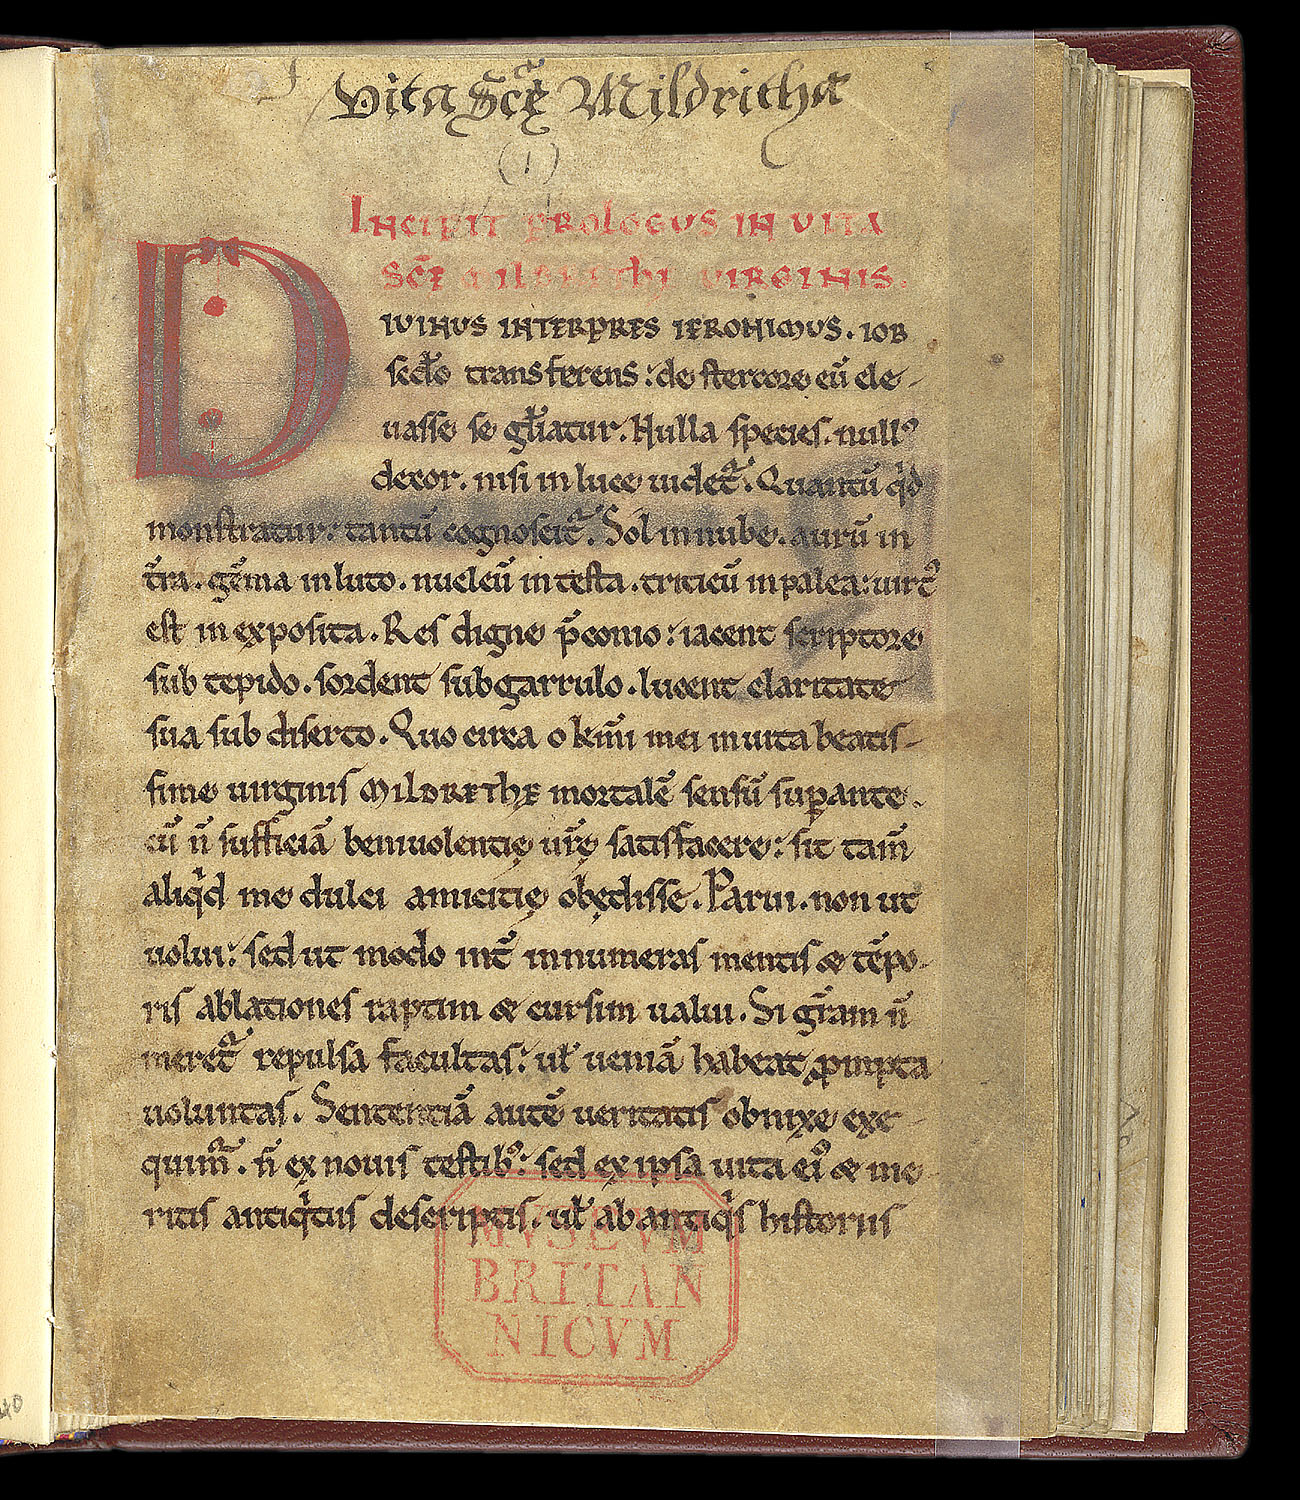 Vita Scę̄ Mildrithę
(1)
INCIPIT PROLOGUS IN VITA
SCĒ MILDRETHE VIRGINIS.
DIUINUS INTERPRES IERONIMUS. IOB
sedło transferens: de stercore eū ele-
uasse se gl̄iatur. Nulla species. null᷒
decor. nisi in luce uidet᷑. Quantū qͥd
monstratur: tantū cognoscit᷑. Sol in nube. aurū in
t̄ra. gēma in luto. nucleū in testa. triticū in palea: uirt᷒
est inexposita. Res digne p̄conio: iacent scriptore
sub tepido. sordent sub garrulo. lucent claritate
sua sub diserto. Quo circa o kmī mei in uita beatis-
sime uirginis MILDRETHE mortalē sensū suꝑante.
cū n̄ sufficiā beniuolentię ur̄ę satisfacere: sit tam̄
aliqͥd me dulci amicitię obędisse. Parui. non ut
uolui: sed ut modo int̄ innumeras mentis & tēpo-
ris ablationes raptim & cursim ualui. Si gr̄am n̄
meret᷑ repulsa facultas: ul̄ ueniā habeat ꝓmpta
uoluntas. Sententiā autē ueritatis obnixe exe-
quim᷑. n̄ ex nouis testib᷒: sed ex ipsa uita ei᷒ & me-
ritis antiqͥtus descriptis. ul̄ ab antiqͥs historiis
MVSEVM
BRITAN
NICVM